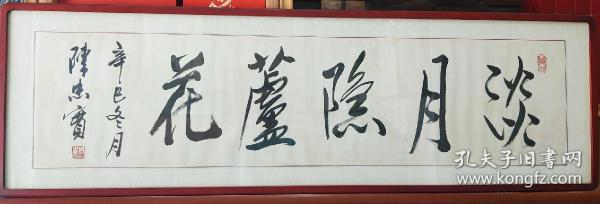 淡月隐蘆花
辛巳冬月
陳忠實
孔夫子旧书网
www.kongfz.com